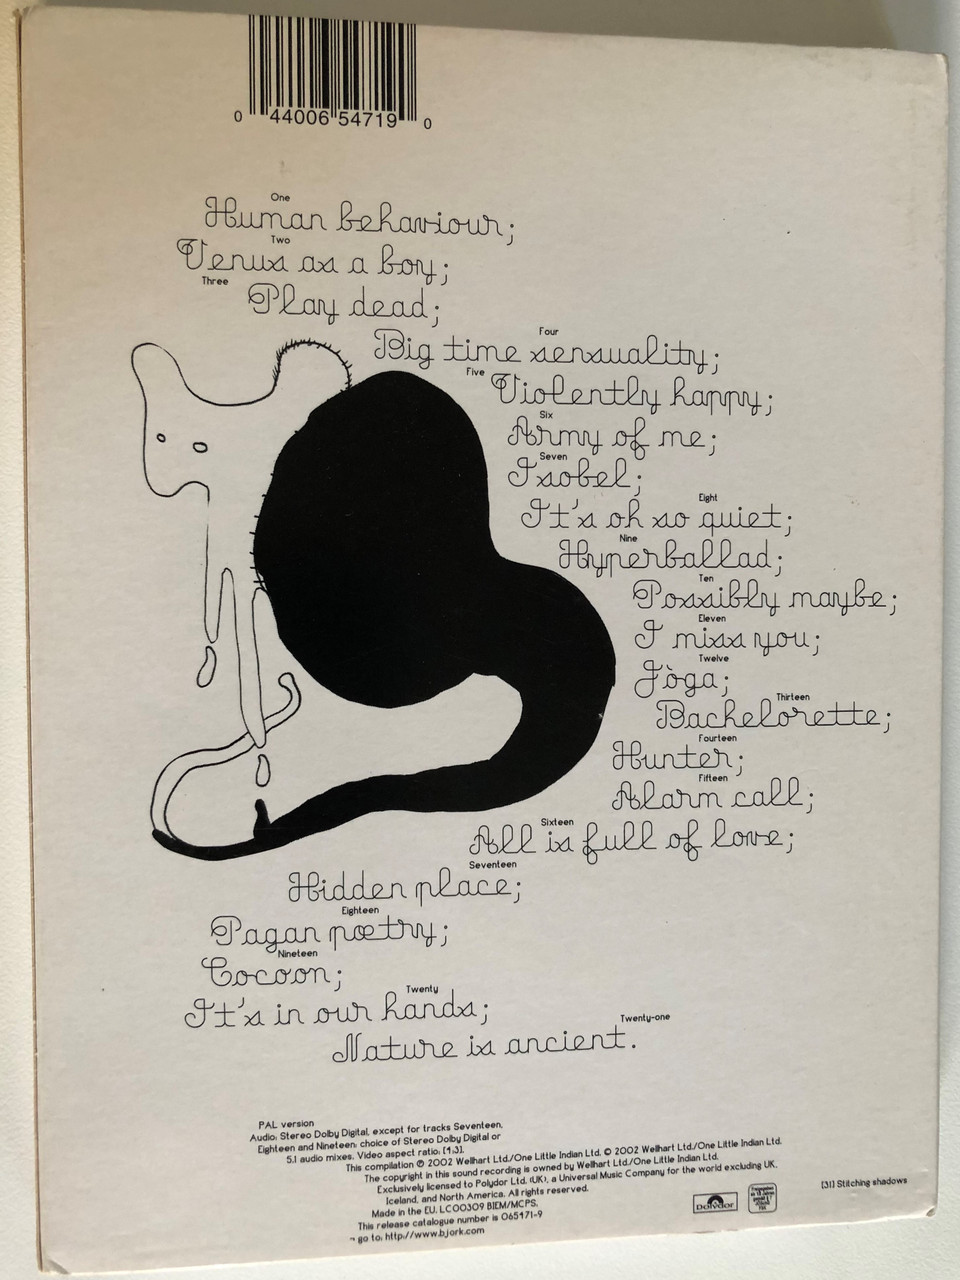 0 44006 54719 0
One
Human behaviour;
Two
Venus as a boy;
Three
Play dead;
Four
Big time sensuality;
Five
Violently happy;
Six
Army of me;
Seven
Isobel;
Eight
It's oh so quiet;
Nine
Hyperballad;
Ten
Possibly maybe;
Eleven
I miss you;
Twelve
Jòga;
Thirteen
Bachelorette;
Fourteen
Hunter;
Fifteen
Alarm call;
Sixteen
All is full of love;
Seventeen
Hidden place;
Eighteen
Pagan pœtry;
Nineteen
Cocoon;
Twenty
It's in our hands;
Twenty-one
Nature is ancient.
PAL version
Audio: Stereo Dolby Digital, except for tracks Seventeen,
Eighteen and Nineteen: choice of Stereo Dolby Digital or
5.1 audio mixes. Video aspect ratio: [4:3].
This compilation ℗ 2002 Wellhart Ltd./One Little Indian Ltd. © 2002 Wellhart Ltd./One Little Indian Ltd.
The copyright in this sound recording is owned by Wellhart Ltd./One Little Indian Ltd.
Exclusively licensed to Polydor Ltd. (UK), a Universal Music Company for the world excluding UK,
Iceland, and North America. All rights reserved.
Made in the EU. LC00309 BIEM/MCPS.
This release catalogue number is 065471-9
¬ go to: http://www.bjork.com
Polydor
[31] Stitching shadows